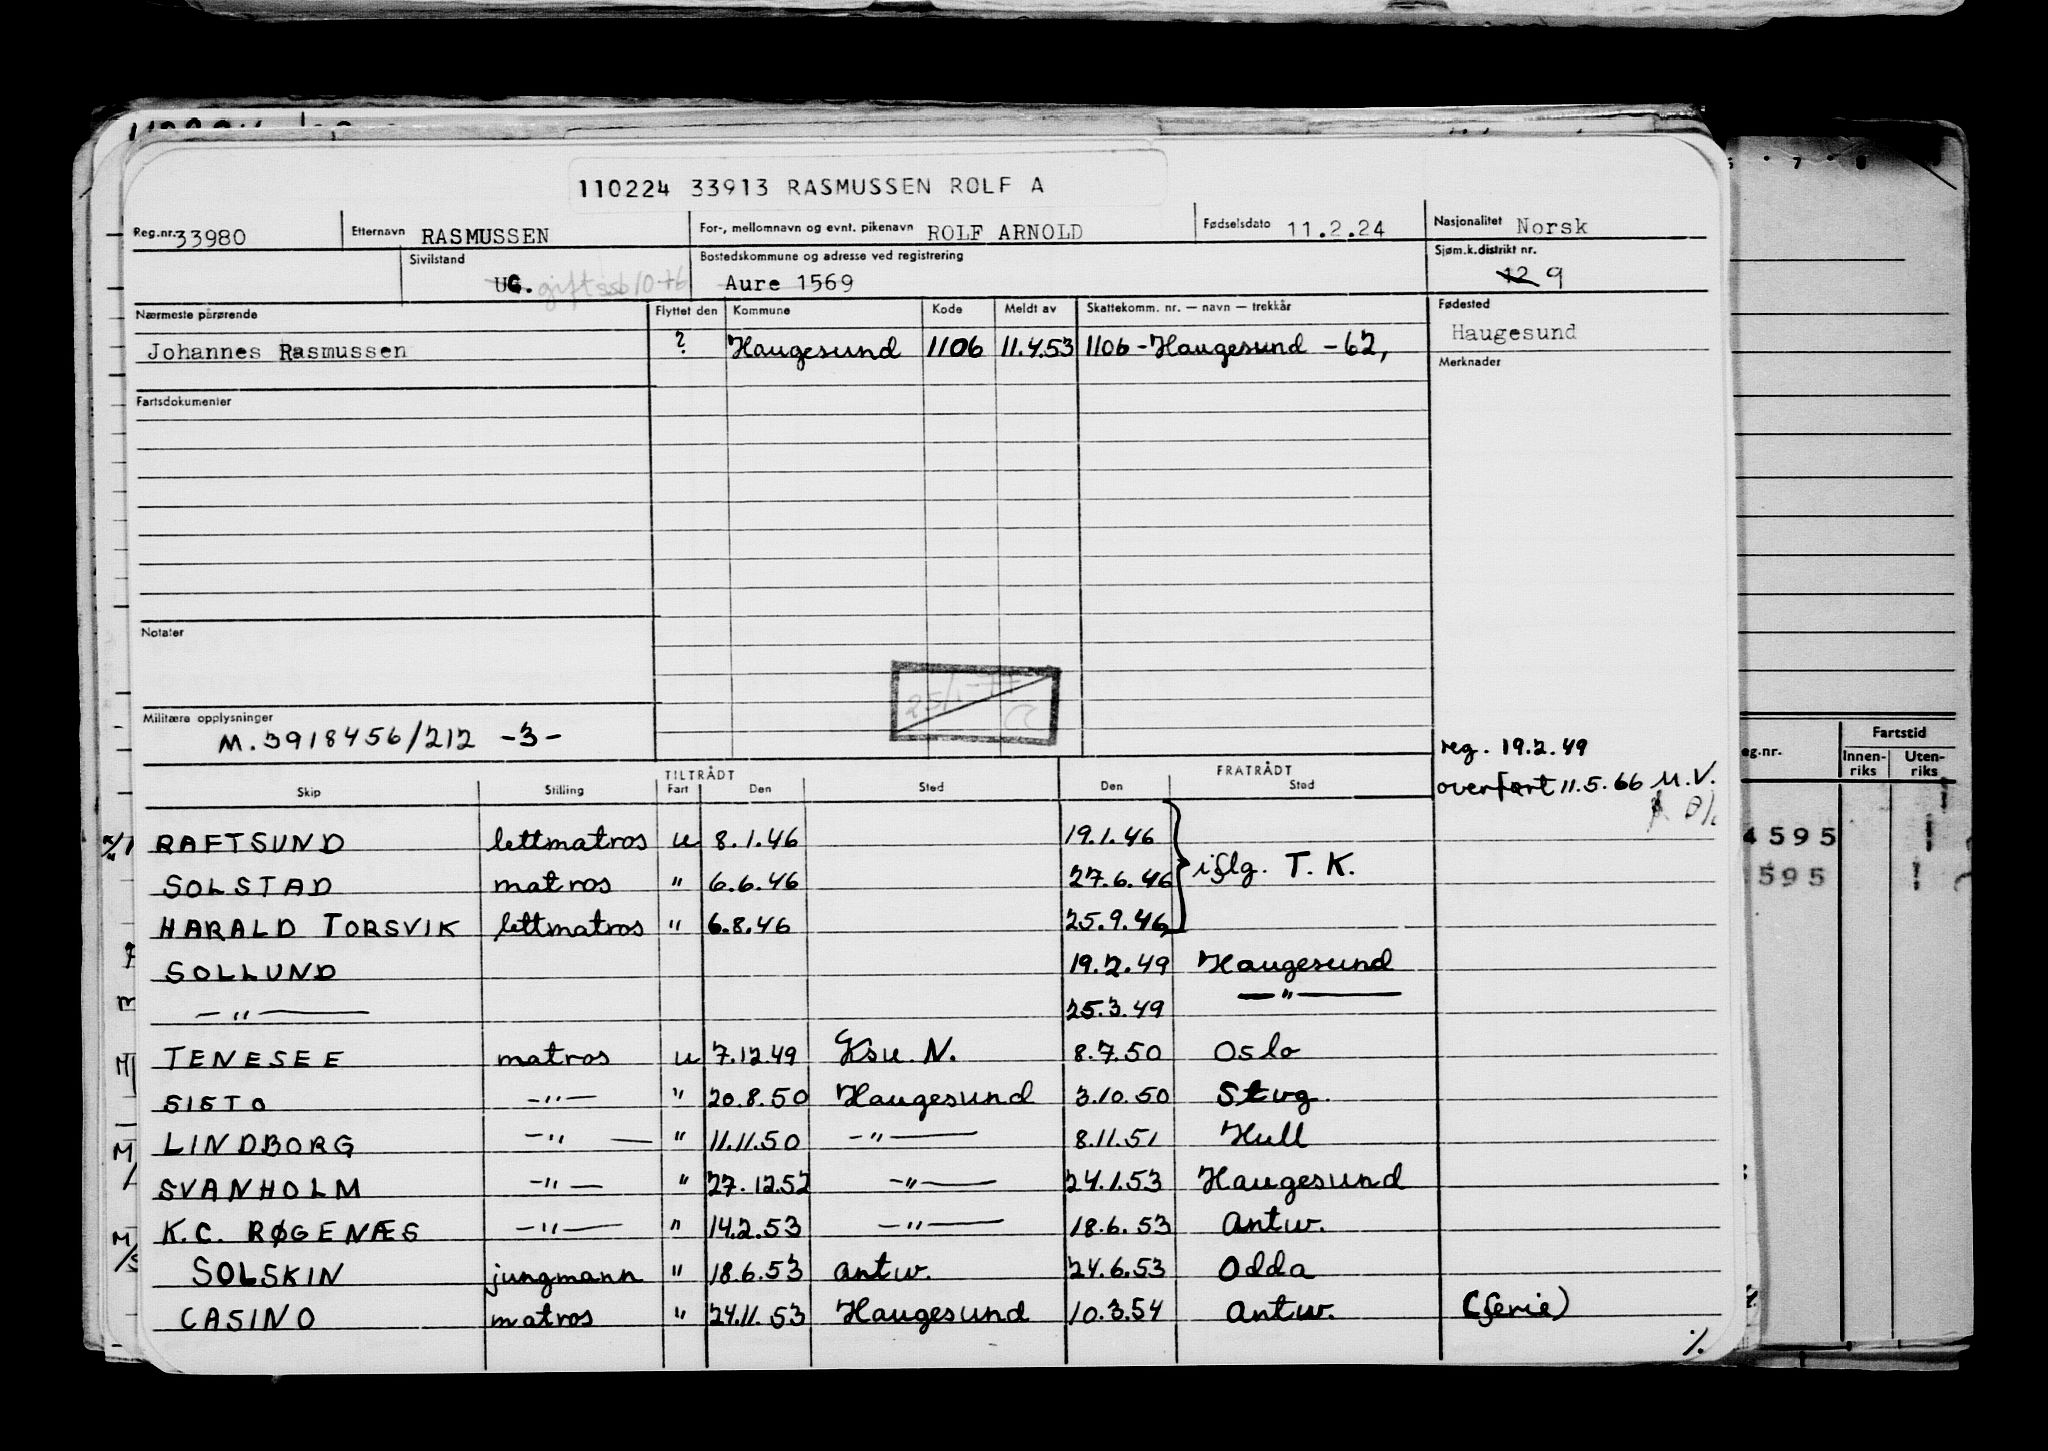 110224 33913 RASMUSSEN ROLF A
Reg.nr. 33980 Etternavn RASMUSSEN For-, mellomnavn og evnt. pikenavn ROLF ARNOLD Fødselsdato 11.2.24 Nasjonalitet Norsk
Sivilstand UG. gift ssb 10-76 Bostedskommune og adresse ved registrering Aure 1569 Sjøm.k.distrikt nr. 12 9
Nærmeste pårørende Flyttet den Kommune Kode Meldt av Skattekomm. nr. — navn — trekkår Fødested
Johannes Rasmussen ? Haugesund 1106 11.4.53 1106 - Haugesund - 62, Haugesund
Merknader
Fartsdokumenter
Notater
Militære opplysninger
M. 3918456/212 -3-
reg. 19.2.49
overført 11.5.66 M.V.
TILTRÅDT FRATRÅDT
Skip Stilling Fart Den Sted Den Sted
RAFTSUND lettmatros u 8.1.46 19.1.46
SOLSTAD matros " 6.6.46 27.6.46 iflg. T. K.
HARALD TORSVIK lettmatros " 6.8.46 25.9.46
SOLLUND 19.2.49 Haugesund
—"— 25.3.49 —"—
TENESEE matros u 7.12.49 Ksu. N. 8.7.50 Oslo
SISTO —"— " 20.8.50 Haugesund 3.10.50 Stvg.
LINDBORG —"— " 11.11.50 —"— 8.11.51 Hull
SVANHOLM —"— " 27.12.52 —"— 24.1.53 Haugesund
K.C. RØGENÆS —"— " 14.2.53 —"— 18.6.53 Antw.
SOLSKIN jungmann " 18.6.53 Antw. 24.6.53 Odda
CASINO matros " 24.11.53 Haugesund 10.3.54 Antw. (ferie)
%
eg.nr. Fartstid
Innen-riks Uten-riks
4595
595